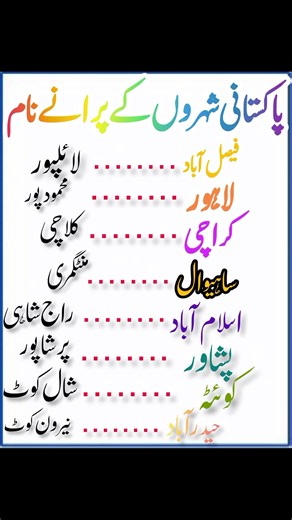 پاکستانی شہروں کے پرانے نام
فیصل آباد ........ لائلپور
لاہور ........ محمود پور
کراچی ........ کلاچی
ساہیوال ........ منٹگمری
اسلام آباد ........ راج شاہی
پشاور ........ پرشاپور
کوئٹہ ........ شال کوٹ
حیدرآباد ........ نیرون کوٹ